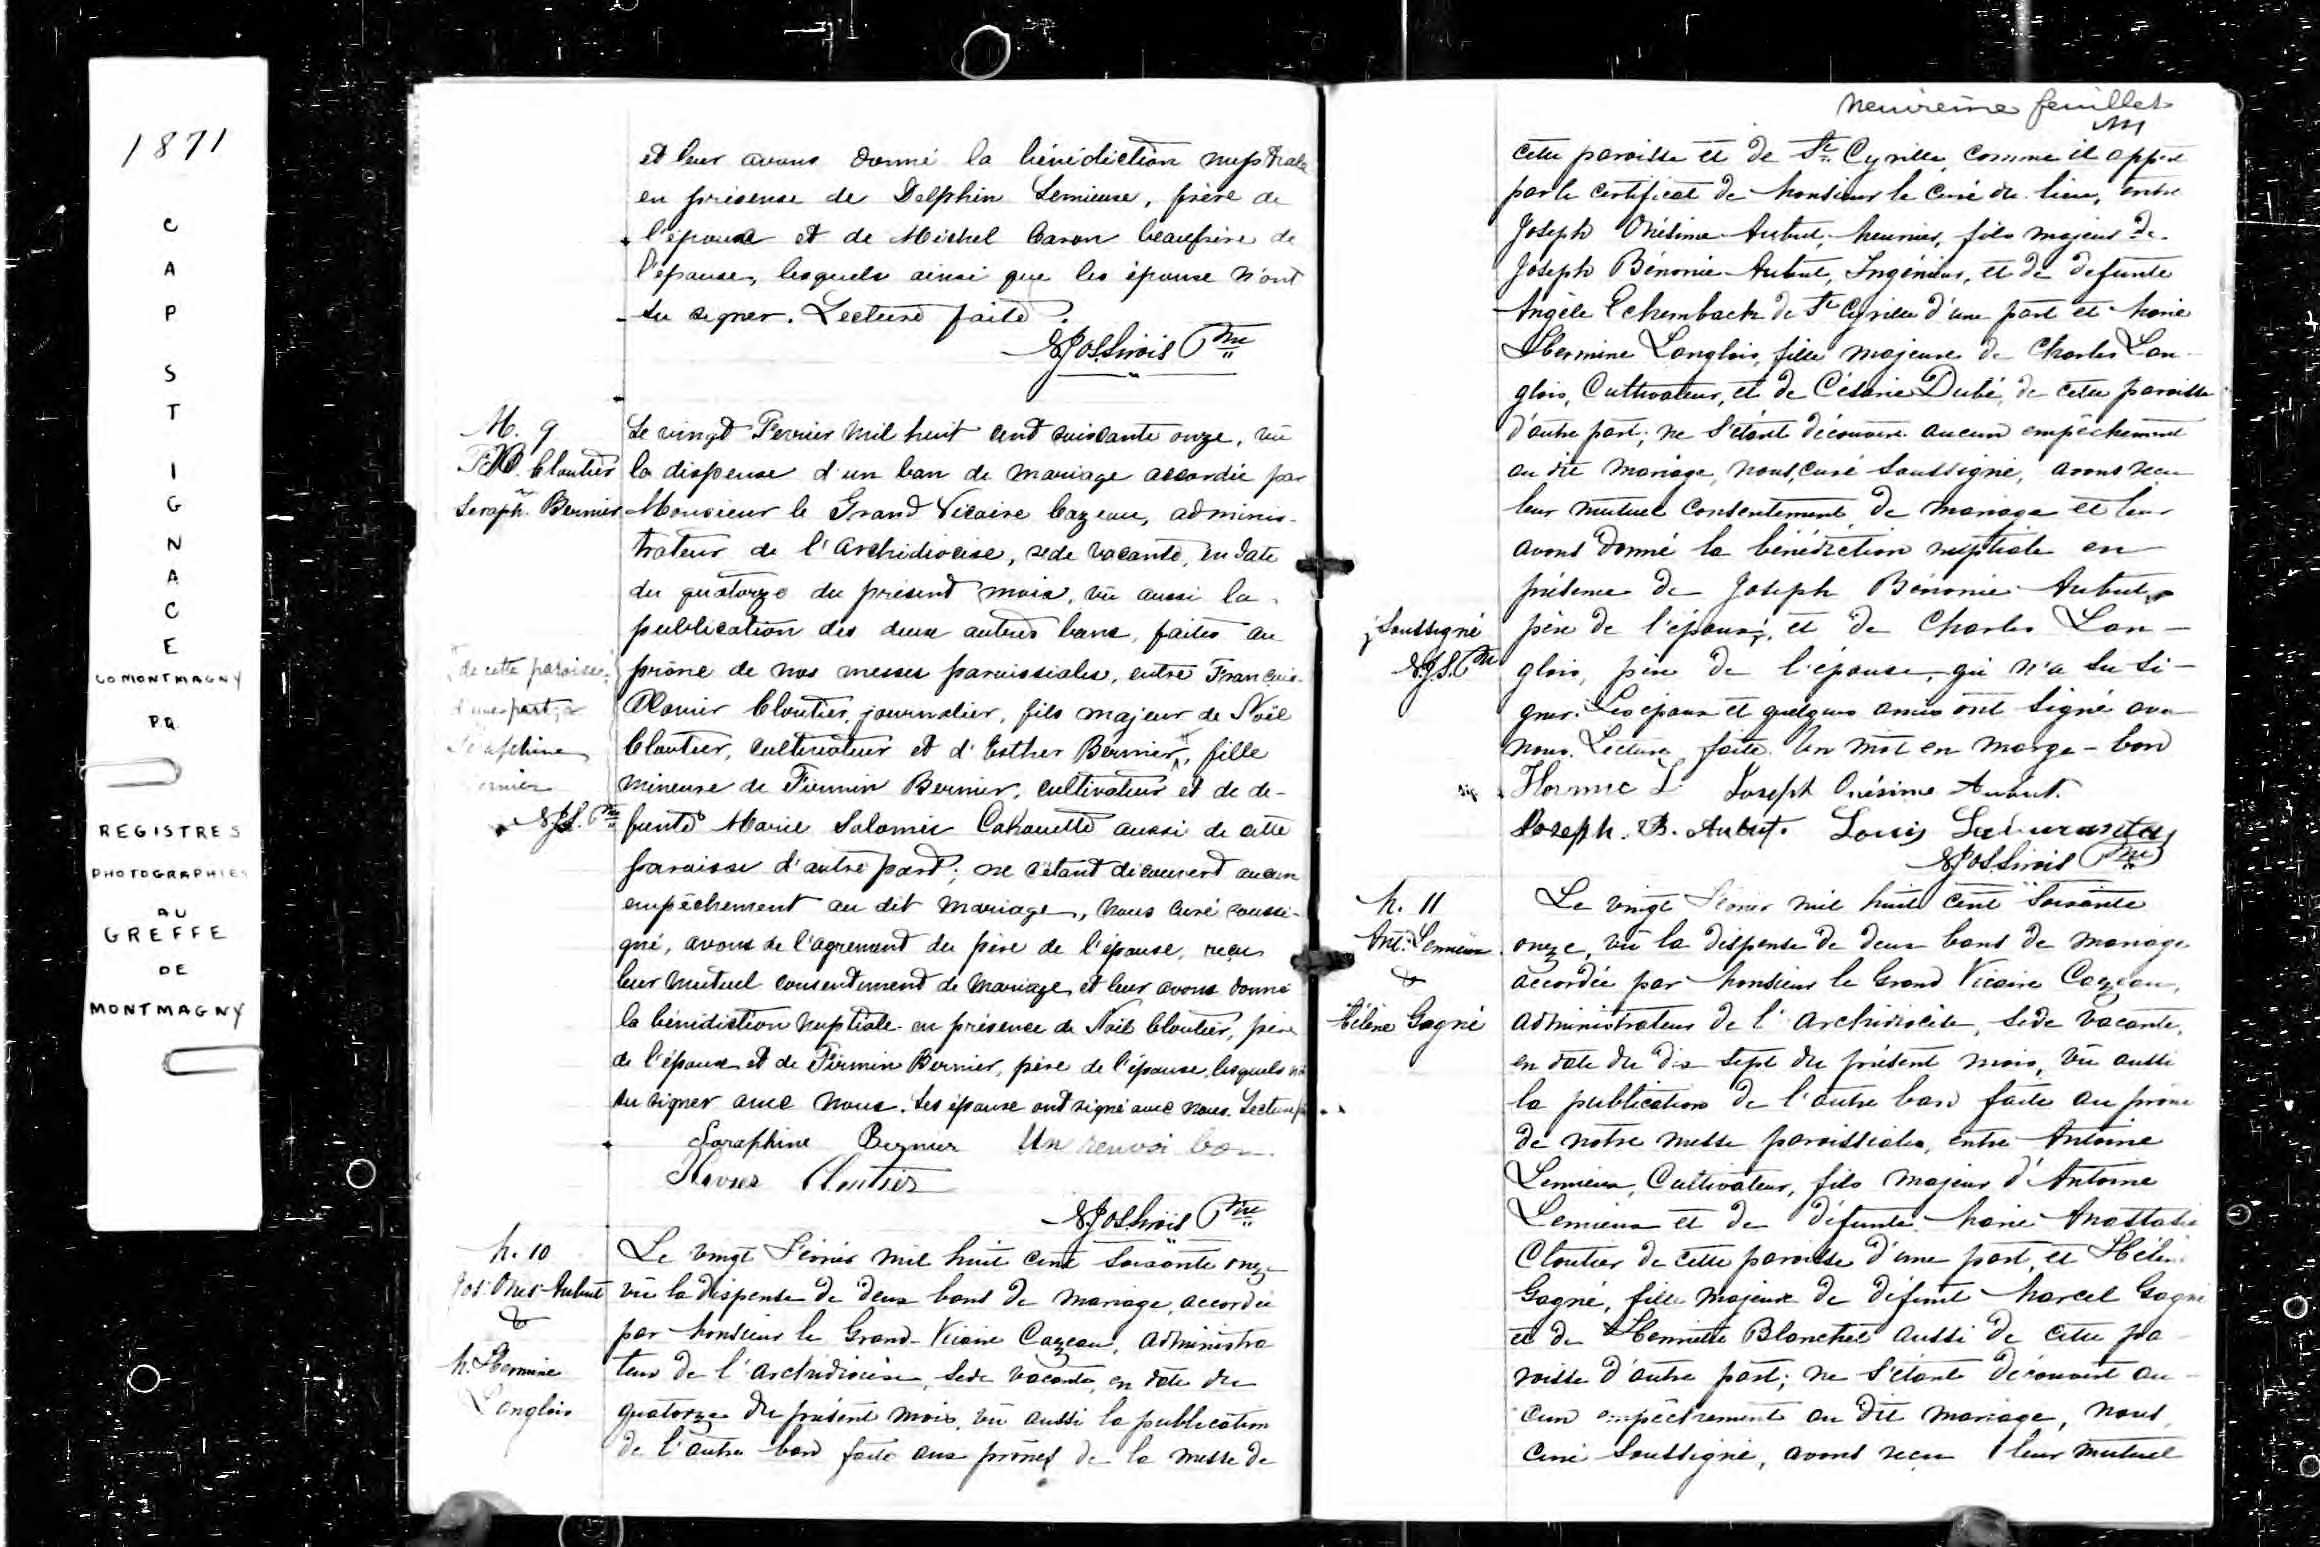 1871
CAP ST IGNACE
CO MONTMAGNY
PQ
REGISTRES
PHOTOGRAPHIES
AU
GREFFE
DE
MONTMAGNY
et leur avons donné la bénédiction nuptiale
en présence de Delphin Lemieux, frère de
l'époux et de Michel Caron beaufrère de
l'épouse, lesquels ainsi que les époux n'ont
su signer. Lecture faite.
N. Jos. Sirois Ptre
M. 9
F. X. Cloutier
Seraph. Bernier
Le vingt Fevrier mil huit cent soixante onze, vu
la dispense d'un ban de mariage accordée par
Monsieur le Grand Vicaire Cazeau, adminis-
trateur de l'Archidiocèse, sede vacante, en date
du quatorze du présent mois, vu aussi la
publication des deux autres bans, faites au
prône de nos messes paroissiales, entre François
Xavier Cloutier, journalier, fils majeur de Noël
Cloutier, cultivateur et d'Esther Bernier, fille
mineure de Firmin Bernier, cultivateur et de dé-
funte Marie Salomée Cahouette aussi de cette
paroisse d'autre part; ne s'étant découvert aucun
empêchement au dit mariage, nous curé soussi-
gné, avons de l'agrément du père de l'épouse, reçu
leur mutuel consentement de mariage et leur avons donné
la bénédiction nuptiale en présence de Noël Cloutier, père
de l'époux et de Firmin Bernier, père de l'épouse, lesquels n'ont
su signer avec nous. Les époux ont signé avec nous. Lecture
de cette paroisse
d'une part, &
Séraphine
Bernier
N.J.S. Ptre
Seraphine Bernier Un renvoi bon
Xavier Cloutier
N. Jos. Sirois Ptre
M. 10
Jos. Onés. Aubut
&
M. Hermine
Langlois
Le vingt Février mil huit cent soixante onze
vu la dispense de deux bans de mariage, accordée
par Monsieur le Grand-Vicaire Cazeau, administra
teur de l'archidiocèse, sede vacante, en date du
quatorze du présent mois, vu aussi la publication
de l'autre ban faite aux prônes de la messe de
neuvième feuillet
cette paroisse et de St. Cyrille comme il appert
par le certificat de Monsieur le Curé du lieu, entre
Joseph Onésime Aubut, meunier, fils majeur de
Joseph Bénonie Aubut, Ingénieur, et de defunte
Angèle Echembach de St Cyrille d'une part et Marie
Hermine Langlois, fille majeure de Charles Lan-
glois, Cultivateur, et de Césarie Dubé, de cette paroisse
d'autre part; ne s'étant découvert aucun empêchement
au dit mariage, nous, curé soussigné, avons reçu
leur mutuel consentement de mariage et leur
avons donné la bénédiction nuptiale en
présence de Joseph Bénonie Aubut
père de l'époux, et de Charles Lan-
glois, père de l'épouse, qui n'a su si-
gner. Les époux et quelques amis ont signé avec
nous. Lecture faite. Un mot en marge - bon
soussigné
N.J.S. Ptre
Hermine L Joseph Onésime Aubut.
Joseph. B. Aubut. Louis
N. Jos. Sirois Ptre
M. 11
Ant. Lemieux
&
Hélène Gagné
Le vingt Février mil huit cent soixante
onze, vu la dispense de deux bans de mariage
accordée par Monsieur le Grand Vicaire Cazeau,
administrateur de l'Archidiocèse, sede vacante,
en date du dix sept du présent mois, vu aussi
la publication de l'autre ban faite au prône
de notre messe paroissiale, entre Antoine
Lemieux, Cultivateur, fils majeur d'Antoine
Lemieux et de défunte Marie Anastasie
Cloutier de cette paroisse d'une part, et Hélène
Gagné, fille majeure de défunt Marcel Gagné
et de Henriette Blanchet aussi de cette pa-
roisse d'autre part; ne s'étant découvert au-
cun empêchement au dit mariage, nous
curé soussigné, avons reçu leur mutuel